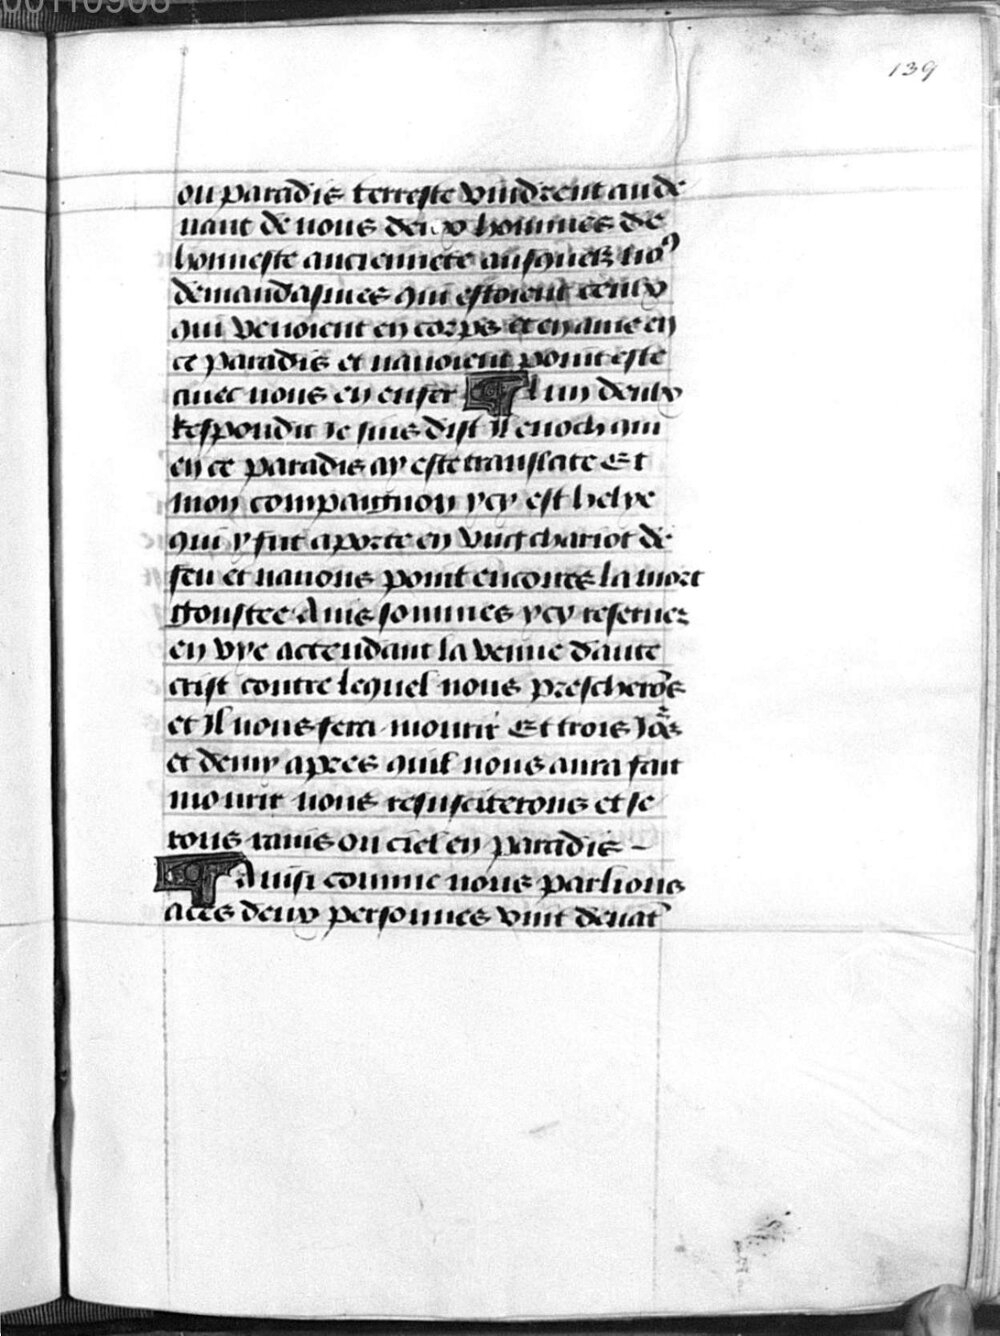 139
ou paradis terreste vindrent au de
uant de nous deux hommes de
honneste anciennete ausquelz no⁹
demandasmes qui estoient ceulx
qui venoient en corps et en ame en
ce paradis et nauoient point este
auec nous en enfer ¶ Lun deulx
Respondit Je suis dist Il enoch qui
en ce paradis ay este translate Et
mon compaignon ycy est helye
qui y fut aporte en vng chariot de
feu et nauons point encores la mort
goustee Ains sommes ycy reseruez
en vye actendant la venue dante
crist contre lequel nous prescherōs
et Il nous fera mourir Et trois Jōs
et demy apres quil nous aura fait
mourir nous resusciterons et se
rons rauis ou ciel en paradis
¶ Ainsi comme nous parlions
aces deux personnes vint deuāt